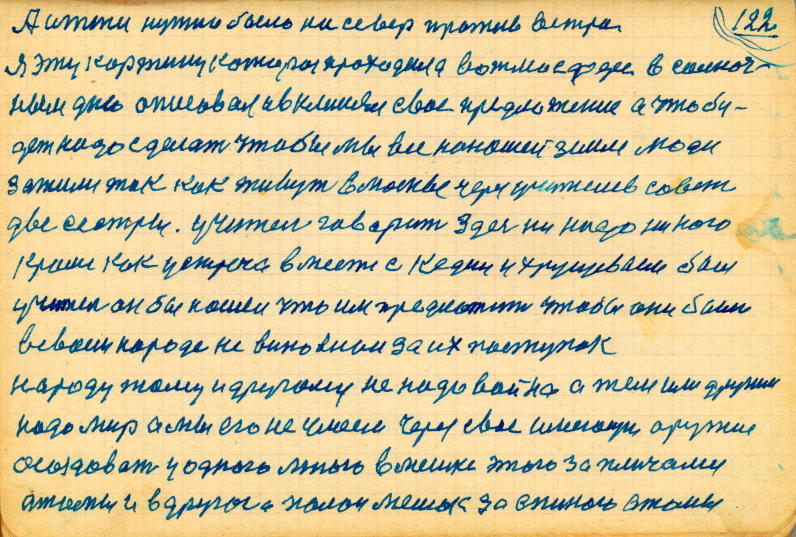 А итти нужно было на север против ветра.
122
Я эту картину которая проходила в атмосфере в солнеч-
ным днь описовал и вклинял свое предложение а что бу-
дет надо сделат чтобы мы все на нашей земле люди
зажили так как живут в Москве через учителев совет
две сестры. учител гаварит здес ни надо никого
кроме как устреча вместе с Кедии и хрущевым был
учител он бы нашел что им предложит чтобы они были
в народе не виноваты за их поступок
народу тому и другому не надо война а тем или другим
надо мир а мы его не умеем через свое имеющи оружия
создоват у одного в мешке этого за пличами
атомы и в другого полон мешок за спиною атомы